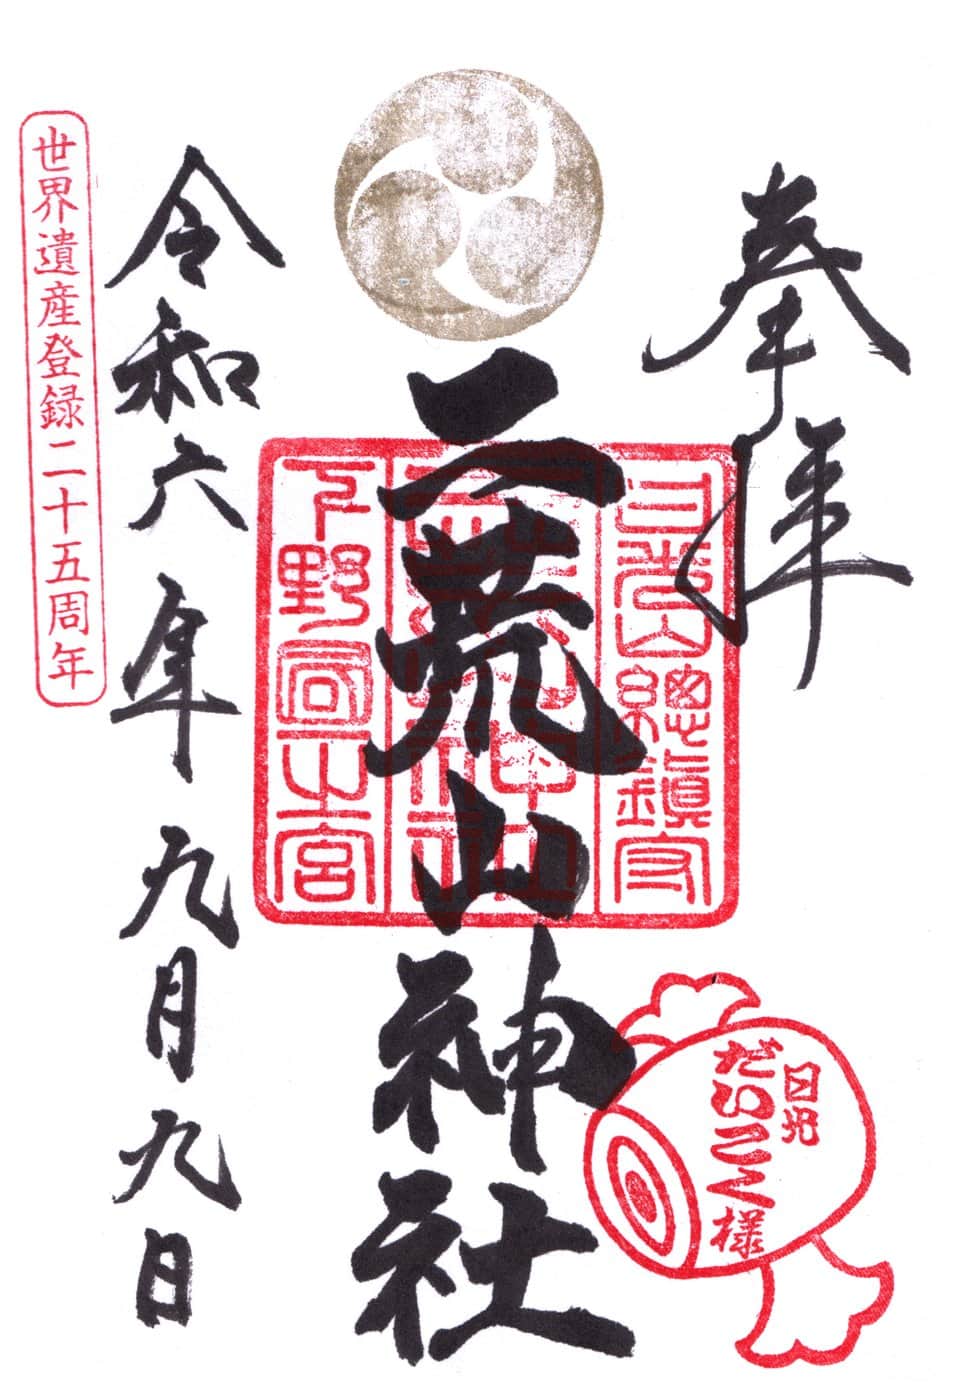 奉拝
日光山總鎮守
二荒山神社
二荒山神社
下野國一之宮
日光
だいこく様
令和六年九月九日
世界遺産登録二十五周年